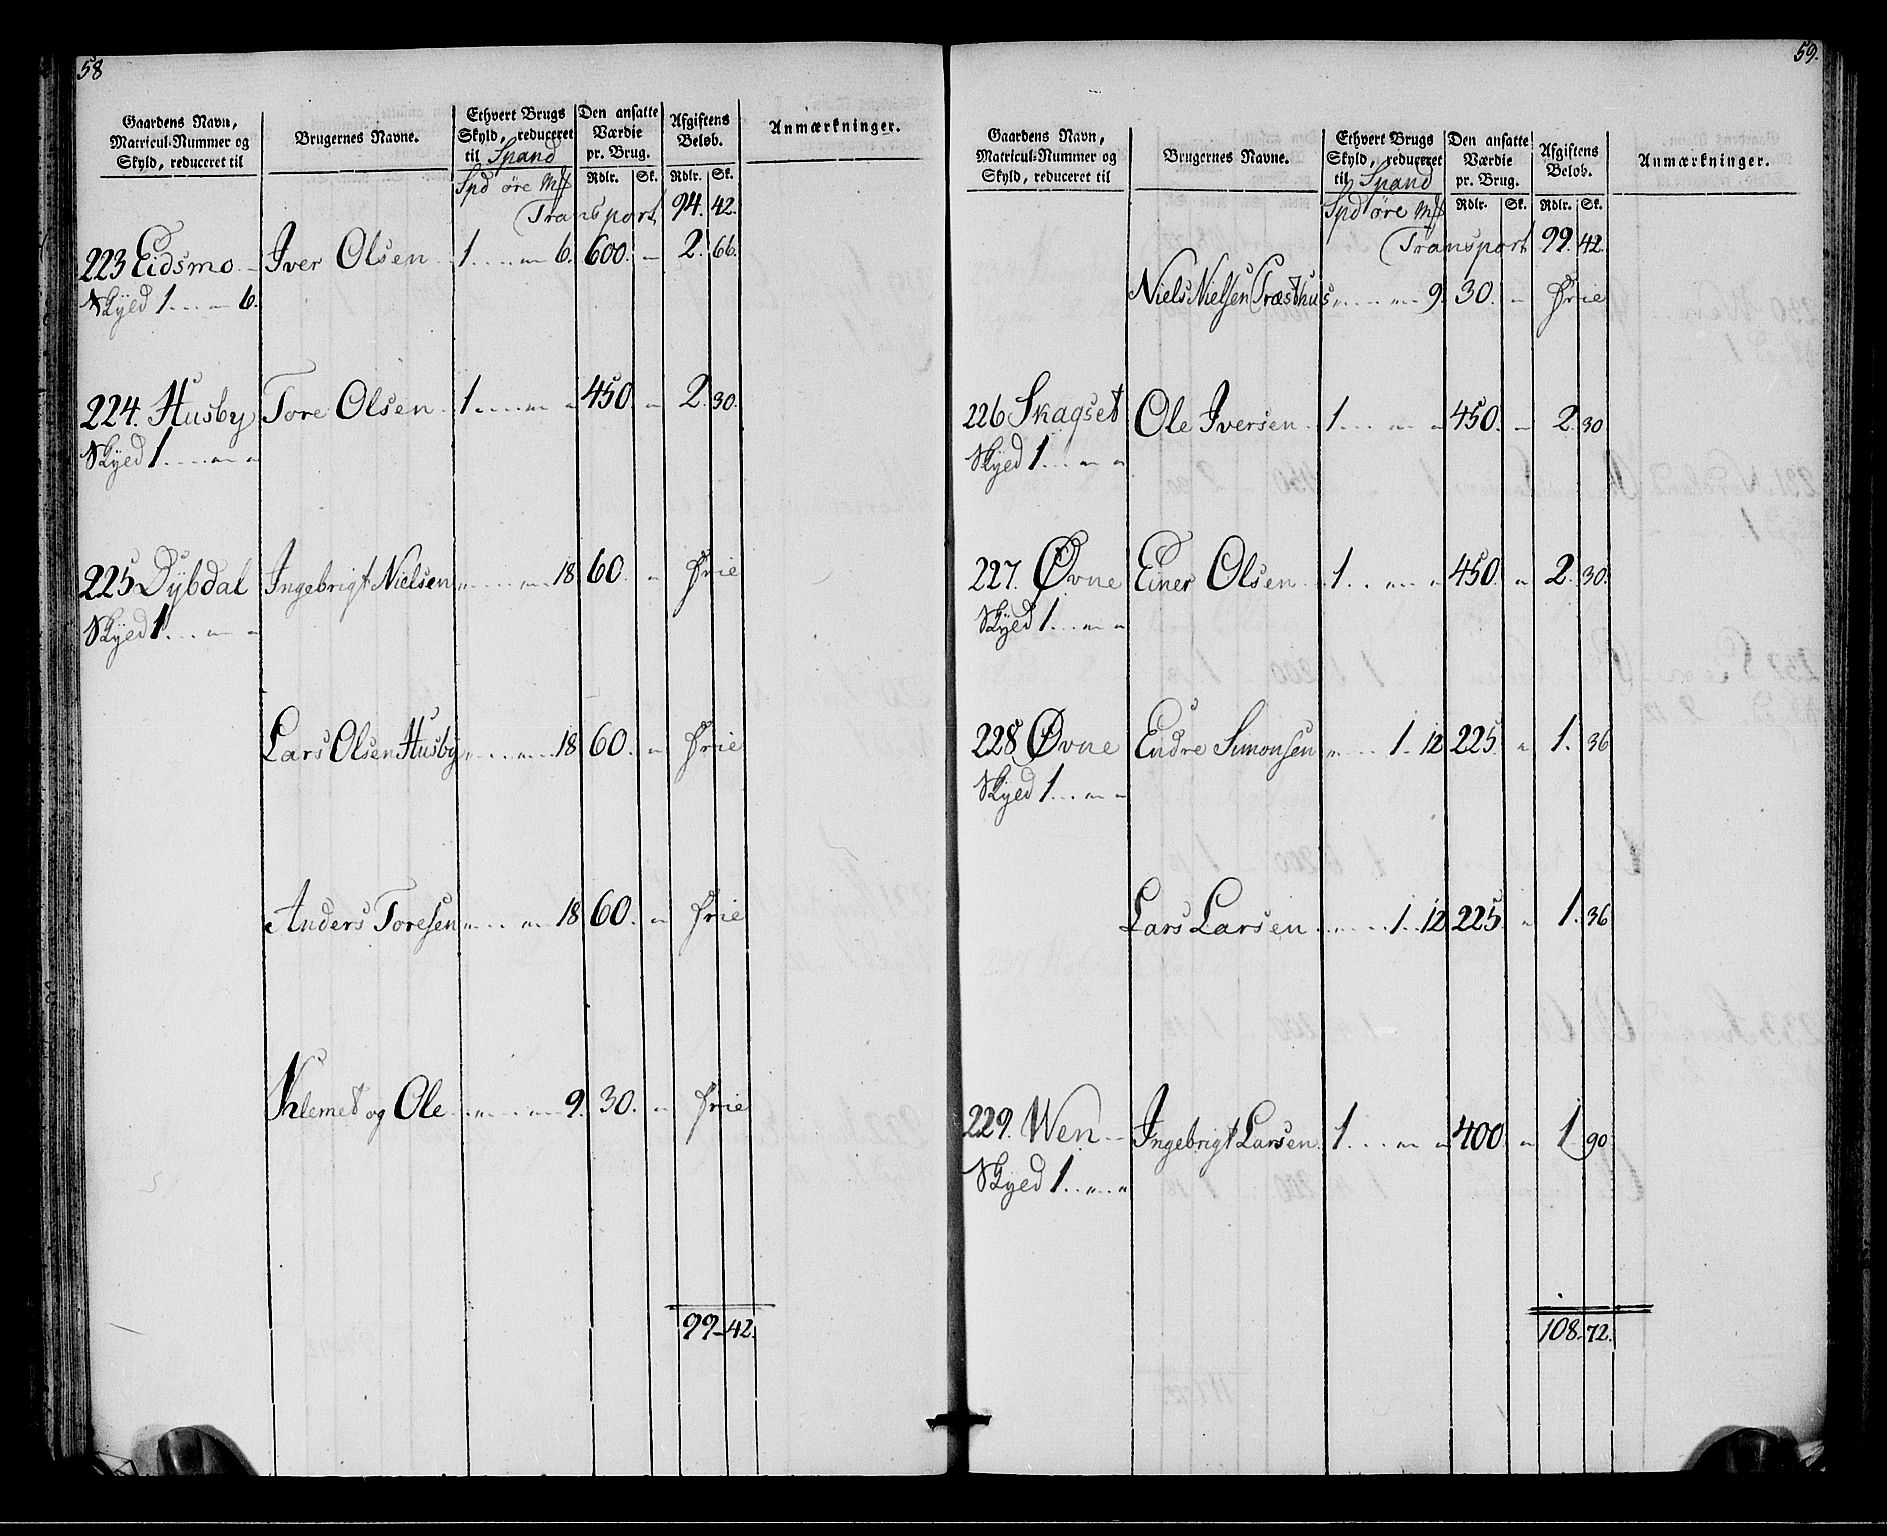 58
Gaardens Navn, Matricul-Nummer og Skyld, reduceret til
Brugernes Navne.
Ethvert Brugs Skyld, reduceret til Spand
Den ansatte Værdie pr. Brug.
Afgiftens Beløb.
Anmærkninger.
Spd øre Mk Rdlr. Sk. Rdlr. Sk.
Transport 94. 42.
223 Eidsmo Iver Olsen 1....„ 6. 600. „ 2. 66.
Skyed 1...„ 6.
224. Husby Tore Olsen 1....„ „ 450. „ 2. 30.
Skyed 1....„ „
225 Dybdal Ingebrigt Nielsen „....„ 18 60. „ frie
Skyed 1....„ „
Lars Olsen Husby „....„ 18 60. „ frie
Anders Toresen „....„ 18 60. „ frie
Klemet og Ole „....„ 9. 30. „ frie
99-42.
59.
Gaardens Navn, Matricul-Nummer og Skyld, reduceret til
Brugernes Navne.
Ethvert Brugs Skyld, reduceret til Spand
Den ansatte Værdie pr. Brug.
Afgiftens Beløb.
Anmærkninger.
Spd øre Mk Rdlr. Sk. Rdlr. Sk.
Transport 99. 42.
Niels Nielsen „....„ 9. 30. „ frie
226 Skagset Ole Iversen 1....„ „ 450. „ 2. 30
Skyed 1....„ „
227. Øvne Einer Olsen 1...„ „ 450. „ 2. 30.
Skyed 1...„ „
228 Øvne Endre Simonsen „....1. 12 225. „ 1. 36
Skyed 1...„ „
Lars Larsen „....1. 12 225. „ 1. 36
229. Wen Ingebrigt Larsen 1...„ „ 400 „ 1 90.
Skyed 1...„ „
108-72.